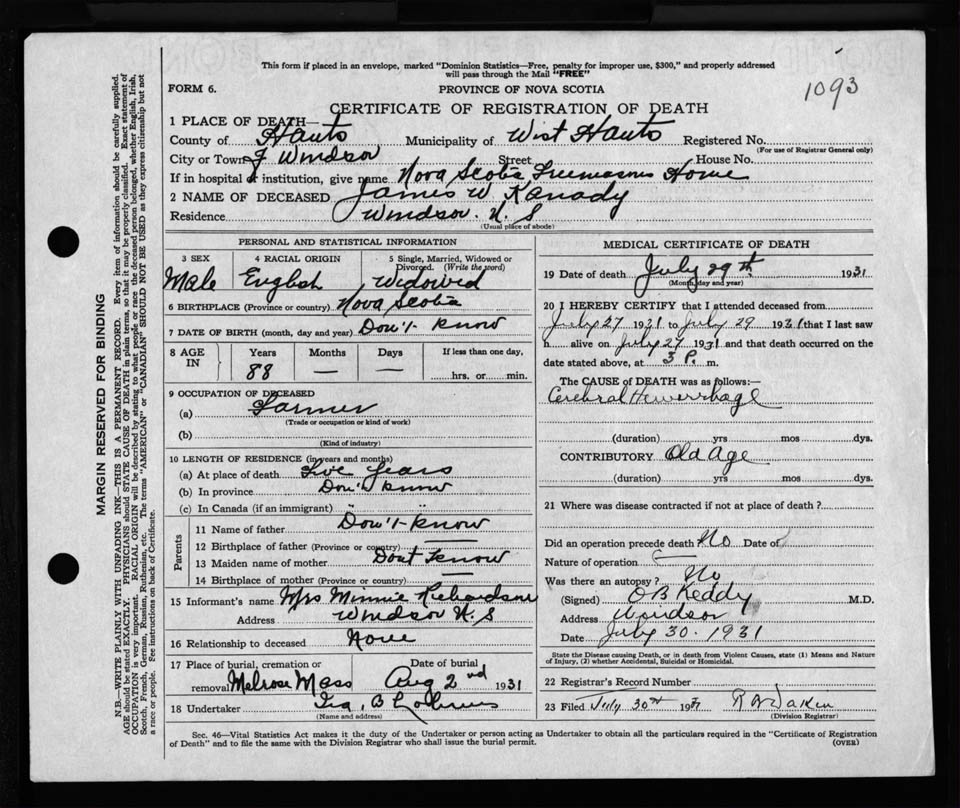 This form if placed in an envelope, marked "Dominion Statistics—Free, penalty for improper use, $300," and properly addressed
will pass through the Mail "FREE"
FORM 6.
PROVINCE OF NOVA SCOTIA
1093
CERTIFICATE OF REGISTRATION OF DEATH
1 PLACE OF DEATH—
County of Hants Municipality of West Hants Registered No.
(For use of Registrar General only)
City or Town of Windsor Street House No.
If in hospital or institution, give name Nova Scotia Freemasons Home
2 NAME OF DECEASED James W. Kanady
Residence Windsor. N. S
(Usual place of abode)
PERSONAL AND STATISTICAL INFORMATION
3 SEX
Male
4 RACIAL ORIGIN
English
5 Single, Married, Widowed or
Divorced. (Write the word)
Widowed
6 BIRTHPLACE (Province or country) Nova Scotia
7 DATE OF BIRTH (month, day and year) Don't know
8 AGE
IN
Years Months Days If less than one day,
88 — — hrs. or min.
9 OCCUPATION OF DECEASED
(a) Farmer
(Trade or occupation or kind of work)
(b)
(Kind of industry)
10 LENGTH OF RESIDENCE (in years and months)
(a) At place of death years
(b) In province Don't know
(c) In Canada (if an immigrant) " "
Parents
11 Name of father Don't know
12 Birthplace of father (Province or country) —
13 Maiden name of mother Dont know
14 Birthplace of mother (Province or country) —
15 Informant's name Mrs Minnie Richardson
Address Windsor N. S
16 Relationship to deceased None
17 Place of burial, cremation or
removal Melrose Mass
Date of burial
Aug 2nd 1931
18 Undertaker B
(Name and address)
MEDICAL CERTIFICATE OF DEATH
19 Date of death July 29th 1931
(Month, day and year)
20 I HEREBY CERTIFY that I attended deceased from
July 27 1931 to July 29 1931 that I last saw
h alive on July 27 1931 and that death occurred on the
date stated above, at 3 P. m.
The CAUSE OF DEATH was as follows:—
Cerebral Hemerrhage
(duration) yrs mos dys.
CONTRIBUTORY Old Age
(duration) yrs mos dys.
21 Where was disease contracted if not at place of death?
Did an operation precede death? No Date of
Nature of operation —
Was there an autopsy? No
(Signed) O B Keddy M.D.
Address Windsor
Date July 30. 1931
State the Disease causing Death, or in death from Violent Causes, state (1) Means and Nature
of Injury, (2) whether Accidental, Suicidal or Homicidal.
22 Registrar's Record Number
23 Filed July 30th 1931
(Division Registrar)
Sec. 46—Vital Statistics Act makes it the duty of the Undertaker or person acting as Undertaker to obtain all the particulars required in the "Certificate of Registration
of Death" and to file the same with the Division Registrar who shall issue the burial permit.
(OVER)
MARGIN RESERVED FOR BINDING
N.B.—WRITE PLAINLY WITH UNFADING INK—THIS IS A PERMANENT RECORD. Every item of information should be carefully supplied.
AGE should be stated EXACTLY. PHYSICIANS should STATE CAUSE OF DEATH in plain terms, so that it may be properly classified. Exact statement of
OCCUPATION is very important. RACIAL ORIGIN will be described by stating to what people or race the deceased person belonged, whether English, Irish,
Scotch, French, German, Russian, Ruthenian, etc. The terms "AMERICAN" or "CANADIAN" SHOULD NOT BE USED as they express citizenship but not
a race or people. See instructions on back of Certificate.